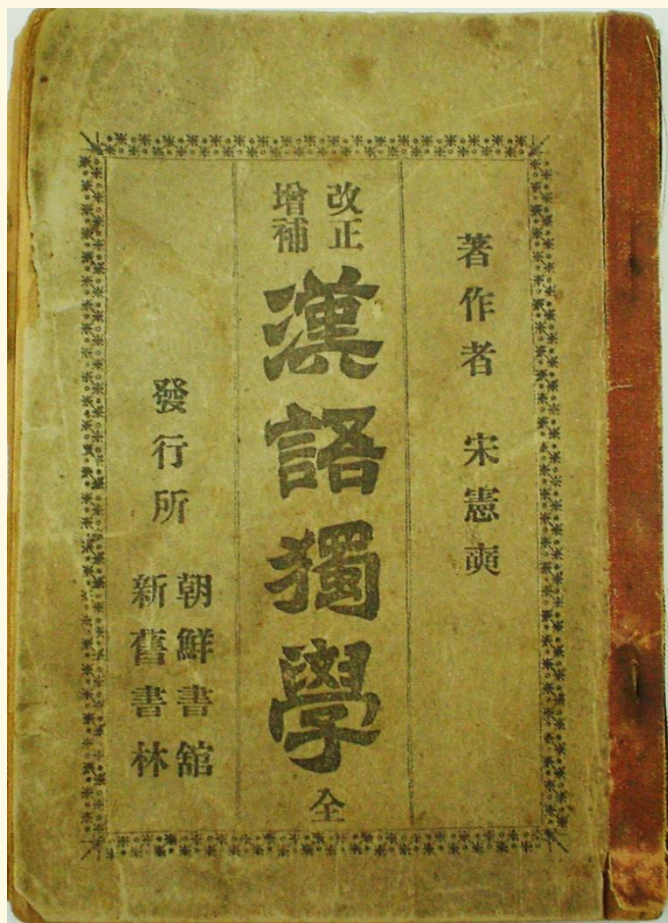 著作者 宋憲奭
改正
增補
漢語獨學 全
發行所
朝鮮書舘
新舊書林